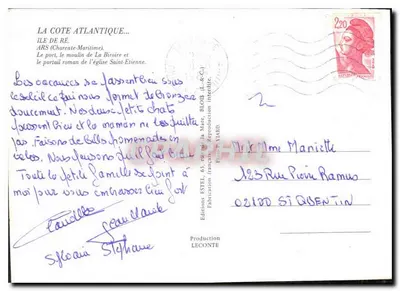 LA COTE ATLANTIQUE...
ILE DE RÉ.
ARS (Charente-Maritime).
Le port, le moulin de La Boivre et
le portail roman de l'église Saint-Etienne.
2,20
Les vacances se passent bien sous
le soleil ce qui nous permet de bronzer
doucement. Nos deux petits chats
passent bien et la maman ne les quitte
pas. Faisons de belles promenades en
vélos. Nous
Toute la petite famille se joint à
moi pour vous embrasser bien fort
Claudette
Jean Claude
Sylvain Stéphane
Mr et Mme Mariette
123 Rue Pierre Ramus
02100 ST QUENTIN
Production
LECONTE